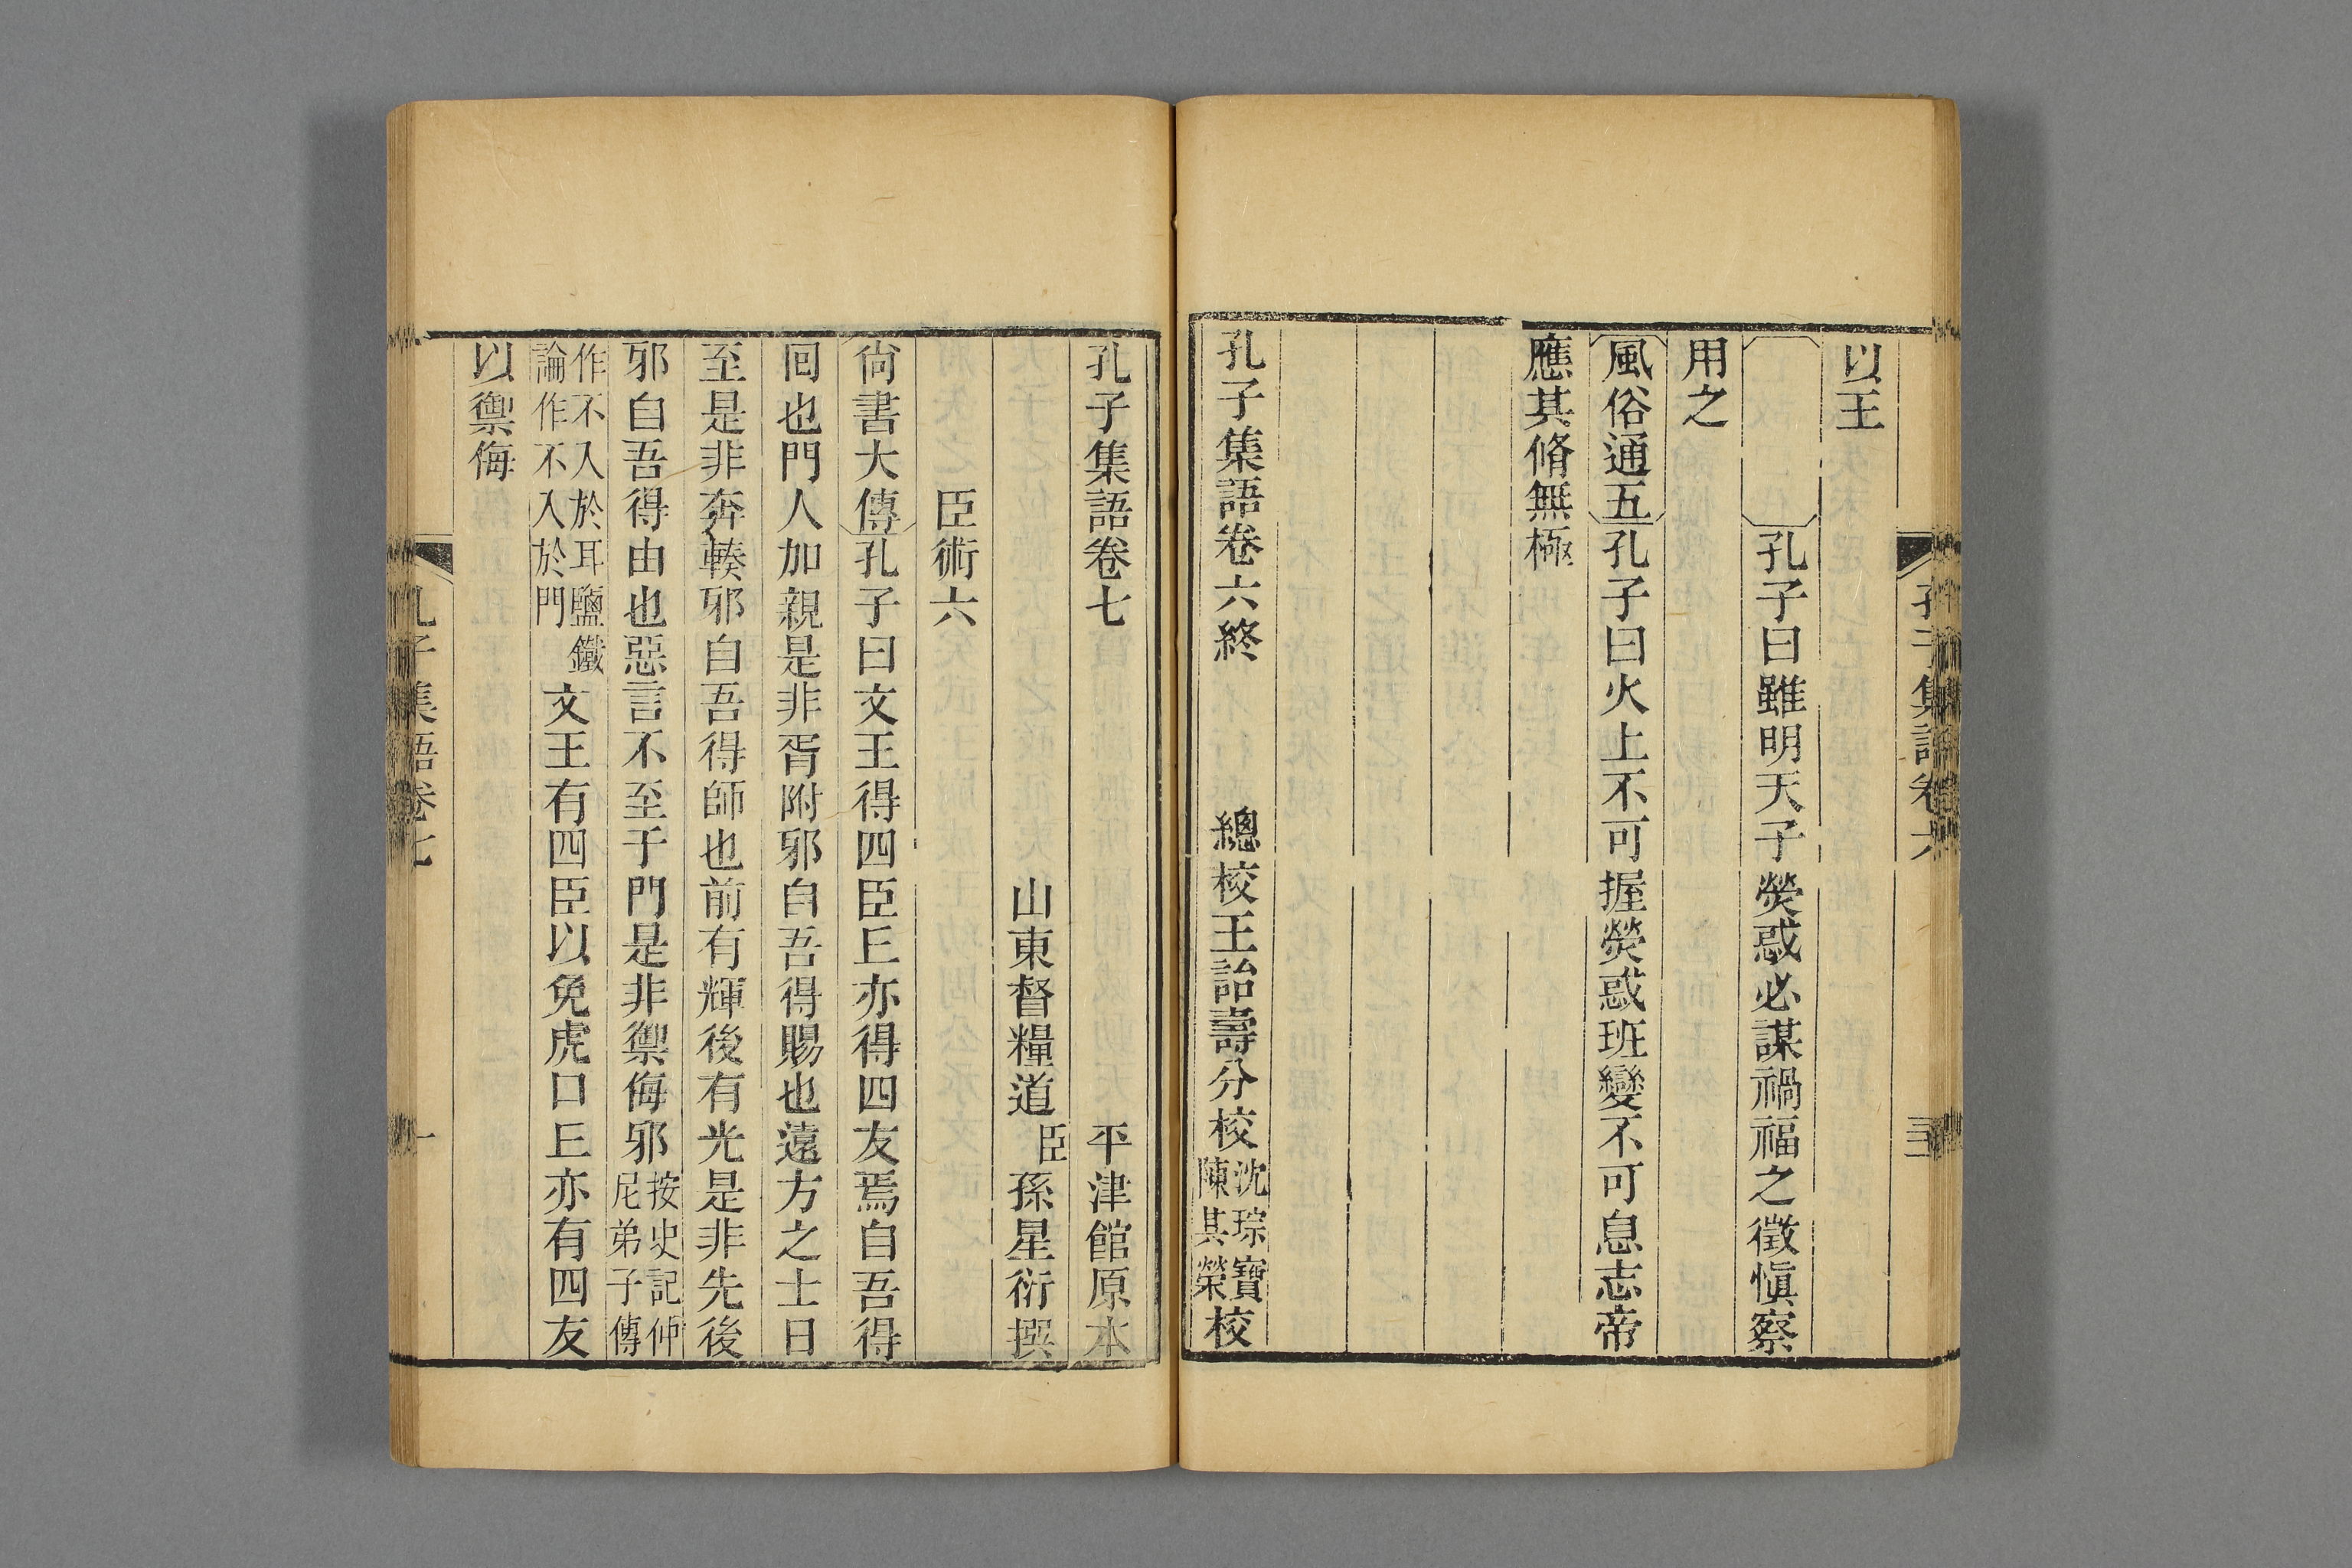 孔子集語卷六
三
以王
孔子曰雖明天子熒惑必謀禍福之徵愼察
用之
風俗通五孔子曰火上不可握熒惑班變不可息志帝
應其脩無極
孔子集語卷六終
總校王詒壽分校
沈琮寶
陳其榮
校
孔子集語卷七
平津館原本
山東督糧道臣孫星衍撰
臣術六
尙書大傳孔子曰文王得四臣𠀉亦得四友焉自吾得
回也門人加親是非胥附邪自吾得賜也遠方之士日
至是非奔輳邪自吾得師也前有輝後有光是非先後
邪自吾得由也惡言不至于門是非禦侮邪
按史記仲
尼弟子傳
作不入於耳鹽鐵
論作不入於門
文王有四臣以免虎口𠀉亦有四友
以禦侮
孔子集語卷七
一